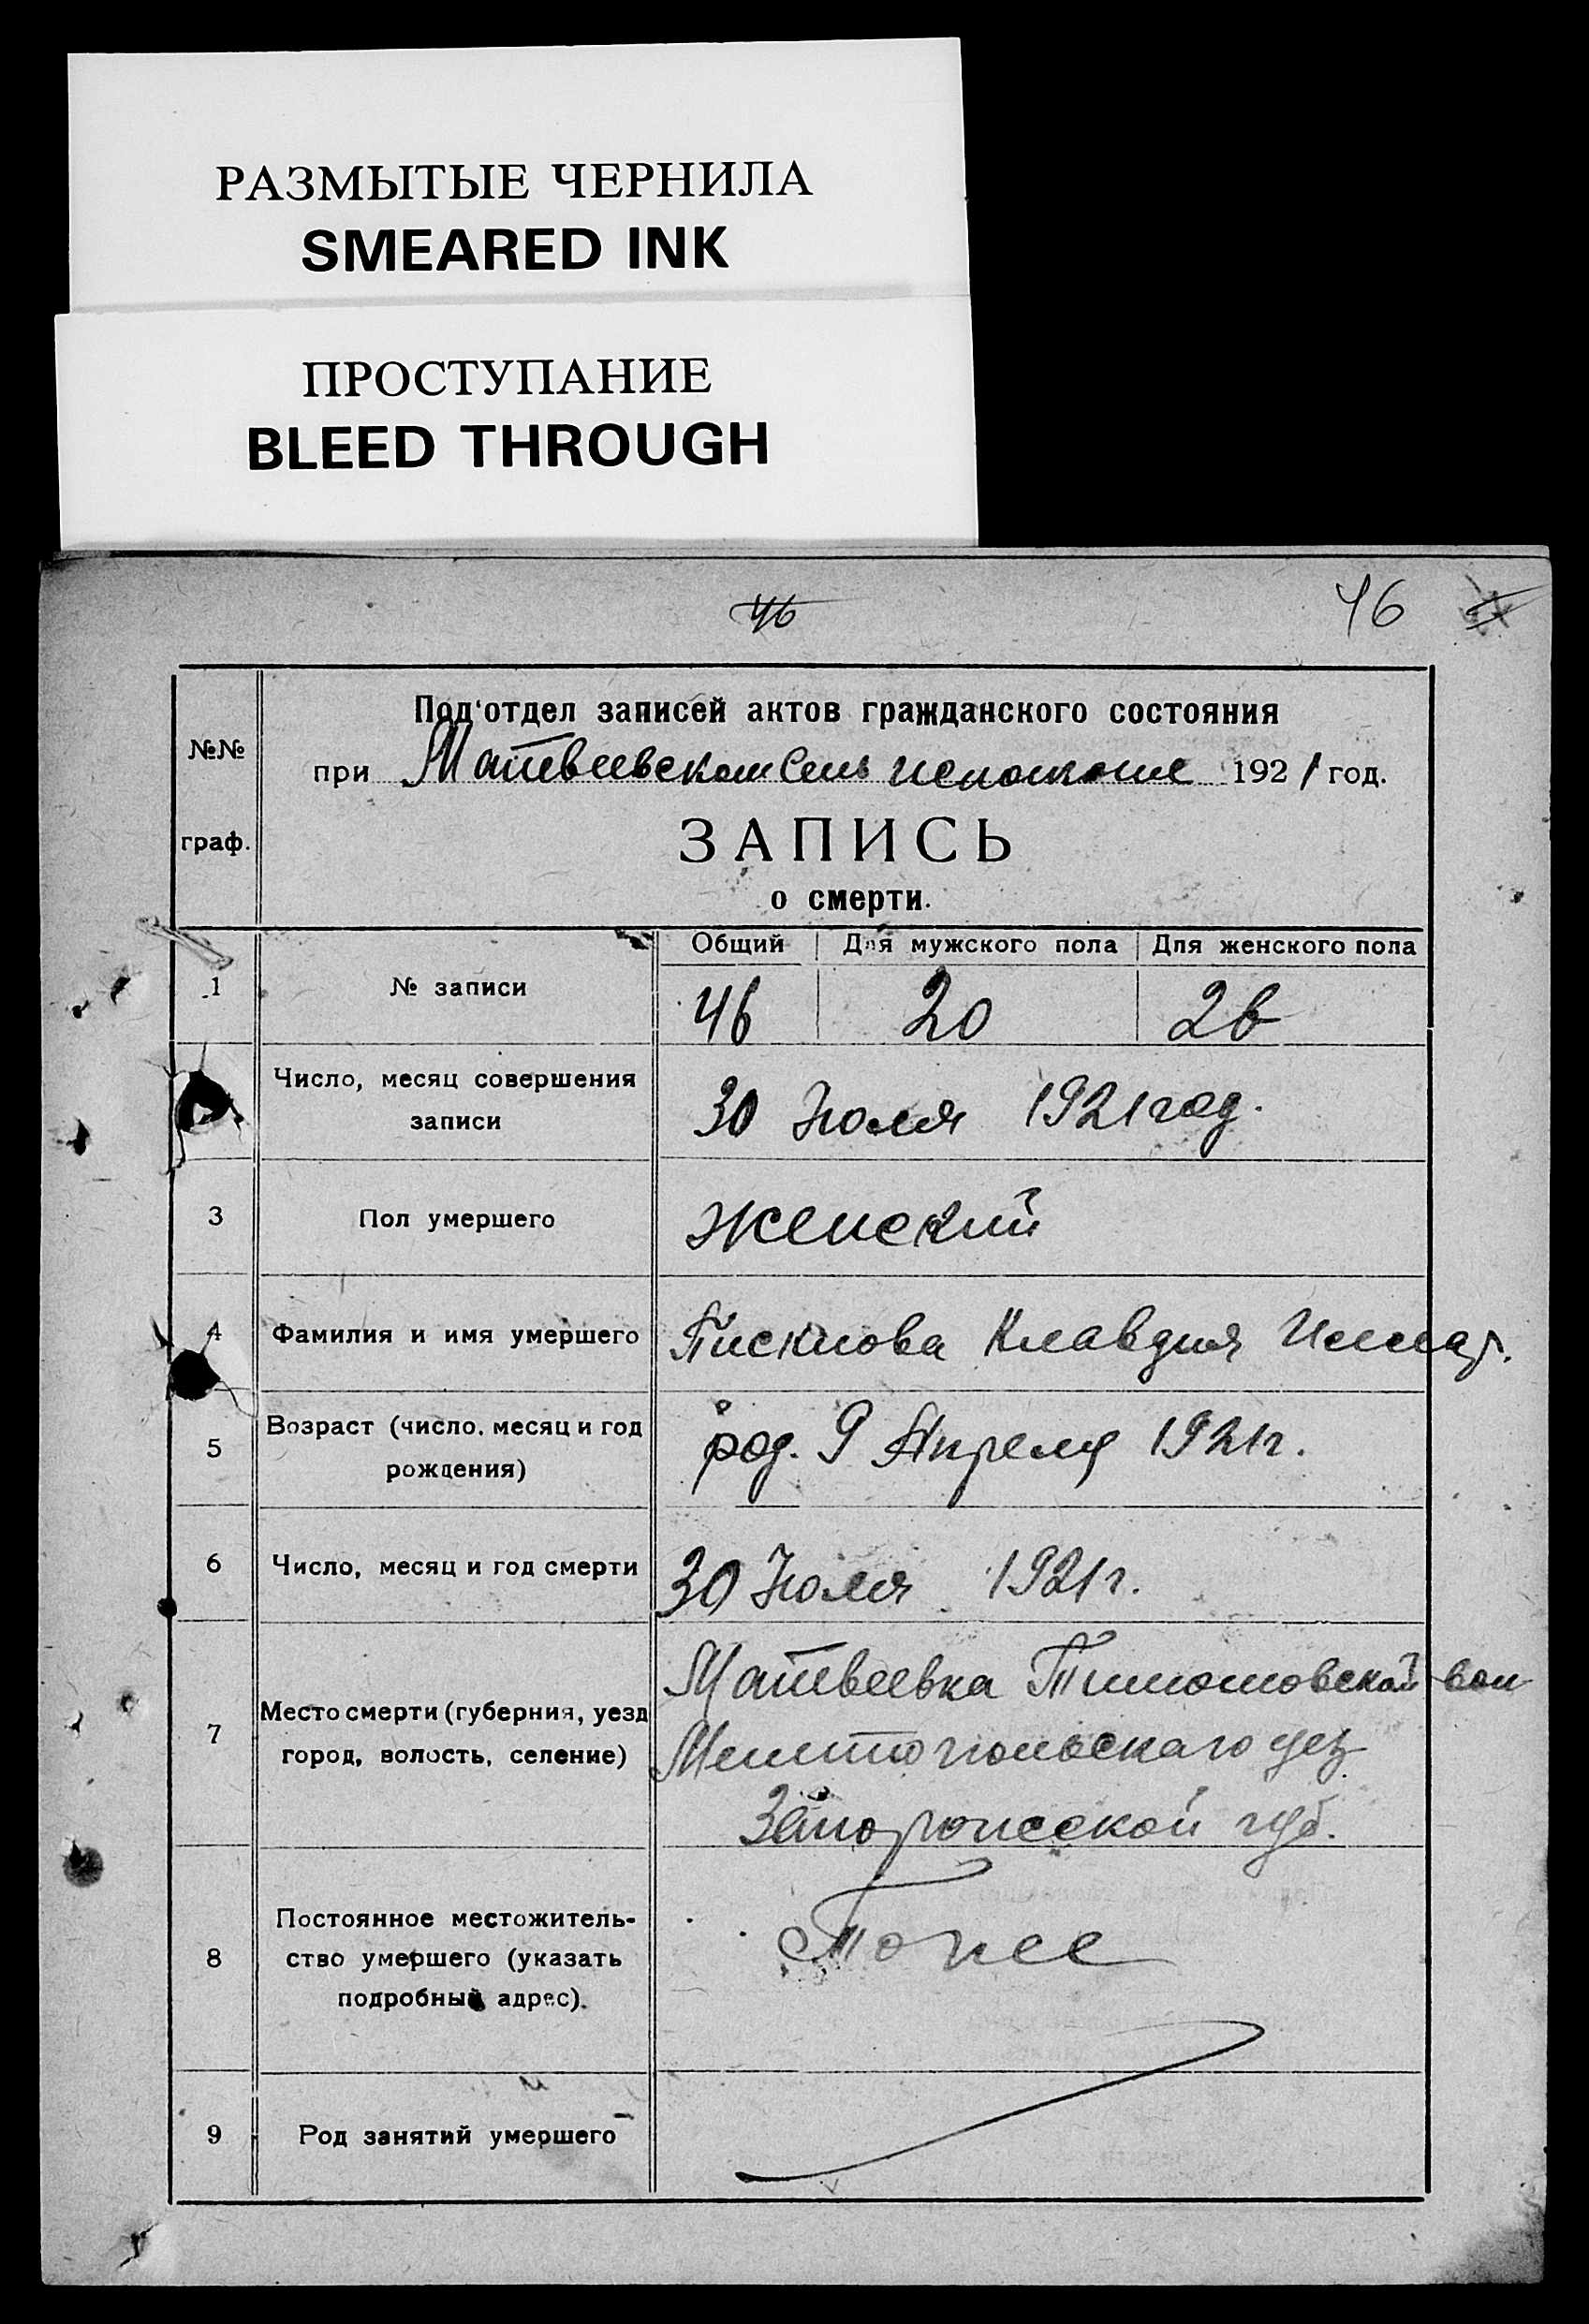 РАЗМЫТЫЕ ЧЕРНИЛА
SMEARED INK
ПРОСТУПАНИЕ
BLEED THROUGH
46
46
№№
граф.
Под'отдел записей актов гражданского состояния
при Матвеевском Сель исполкоме 1921 год.
ЗАПИСЬ
о смерти.
Общий Для мужского пола Для женского пола
1 № записи 46 20 26
Число, месяц совершения
записи
30 Июля 1921 год.
3 Пол умершего женский
4 Фамилия и имя умершего Клавдия
5 Возраст (число, месяц и год
рождения)
род. 9 Апреля 1921г.
6 Число, месяц и год смерти 30 Июля 1921г.
7 Место смерти (губерния, уезд
город, волость, селение)
Матвеевка Тимошовской вол
Мелитопольскаго уез.
Запорожсской губ.
8 Постоянное местожитель-
ство умершего (указать
подробный адрес).
Тоже
9 Род занятий умершего